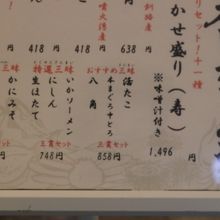 リセット！十一種
かせ盛り（寿）
※味噌汁付き
1,496 円
釧路産
638 円
噴火湾産
円
418 円
418 円
円
おすすめ三味
活たこ
本まぐろ中とろ
八角
三貫セット
858円
特選三味
いかソーメン
にしん
生ほたて
三貫セット
748円
三味
かにみそ
セット
円